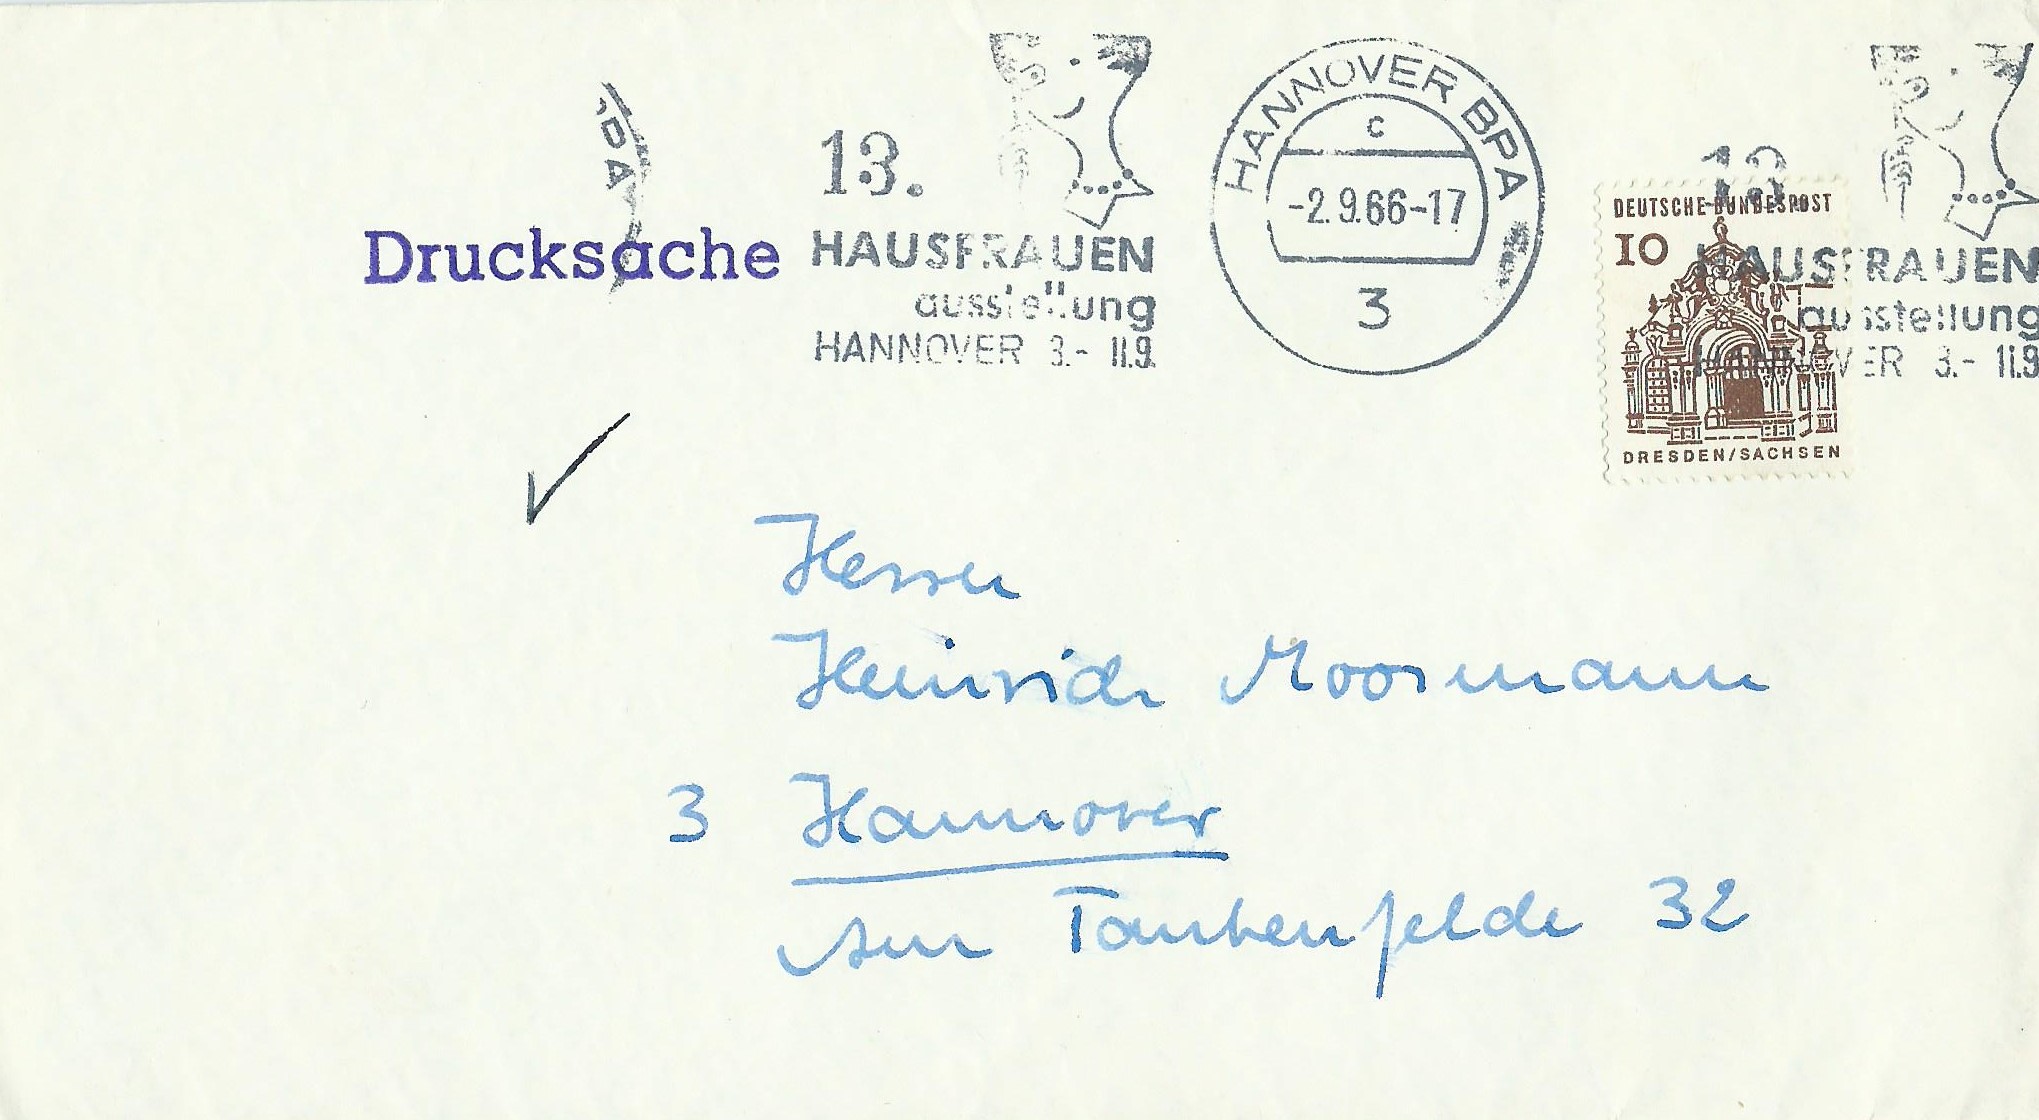 BPA
Drucksache
13.
HAUSFRAUEN
ausstellung
HANNOVER 3.- 11.9.
HANNOVER BPA
c
-2.9.66-17
3
13.
HAUSFRAUEN
ausstellung
HANNOVER 3.- 11.9
DEUTSCHE BUNDESPOST
10
DRESDEN/SACHSEN
Herrn
Heinrich Moormann
3 Hannover
Am Taubenfelde 32